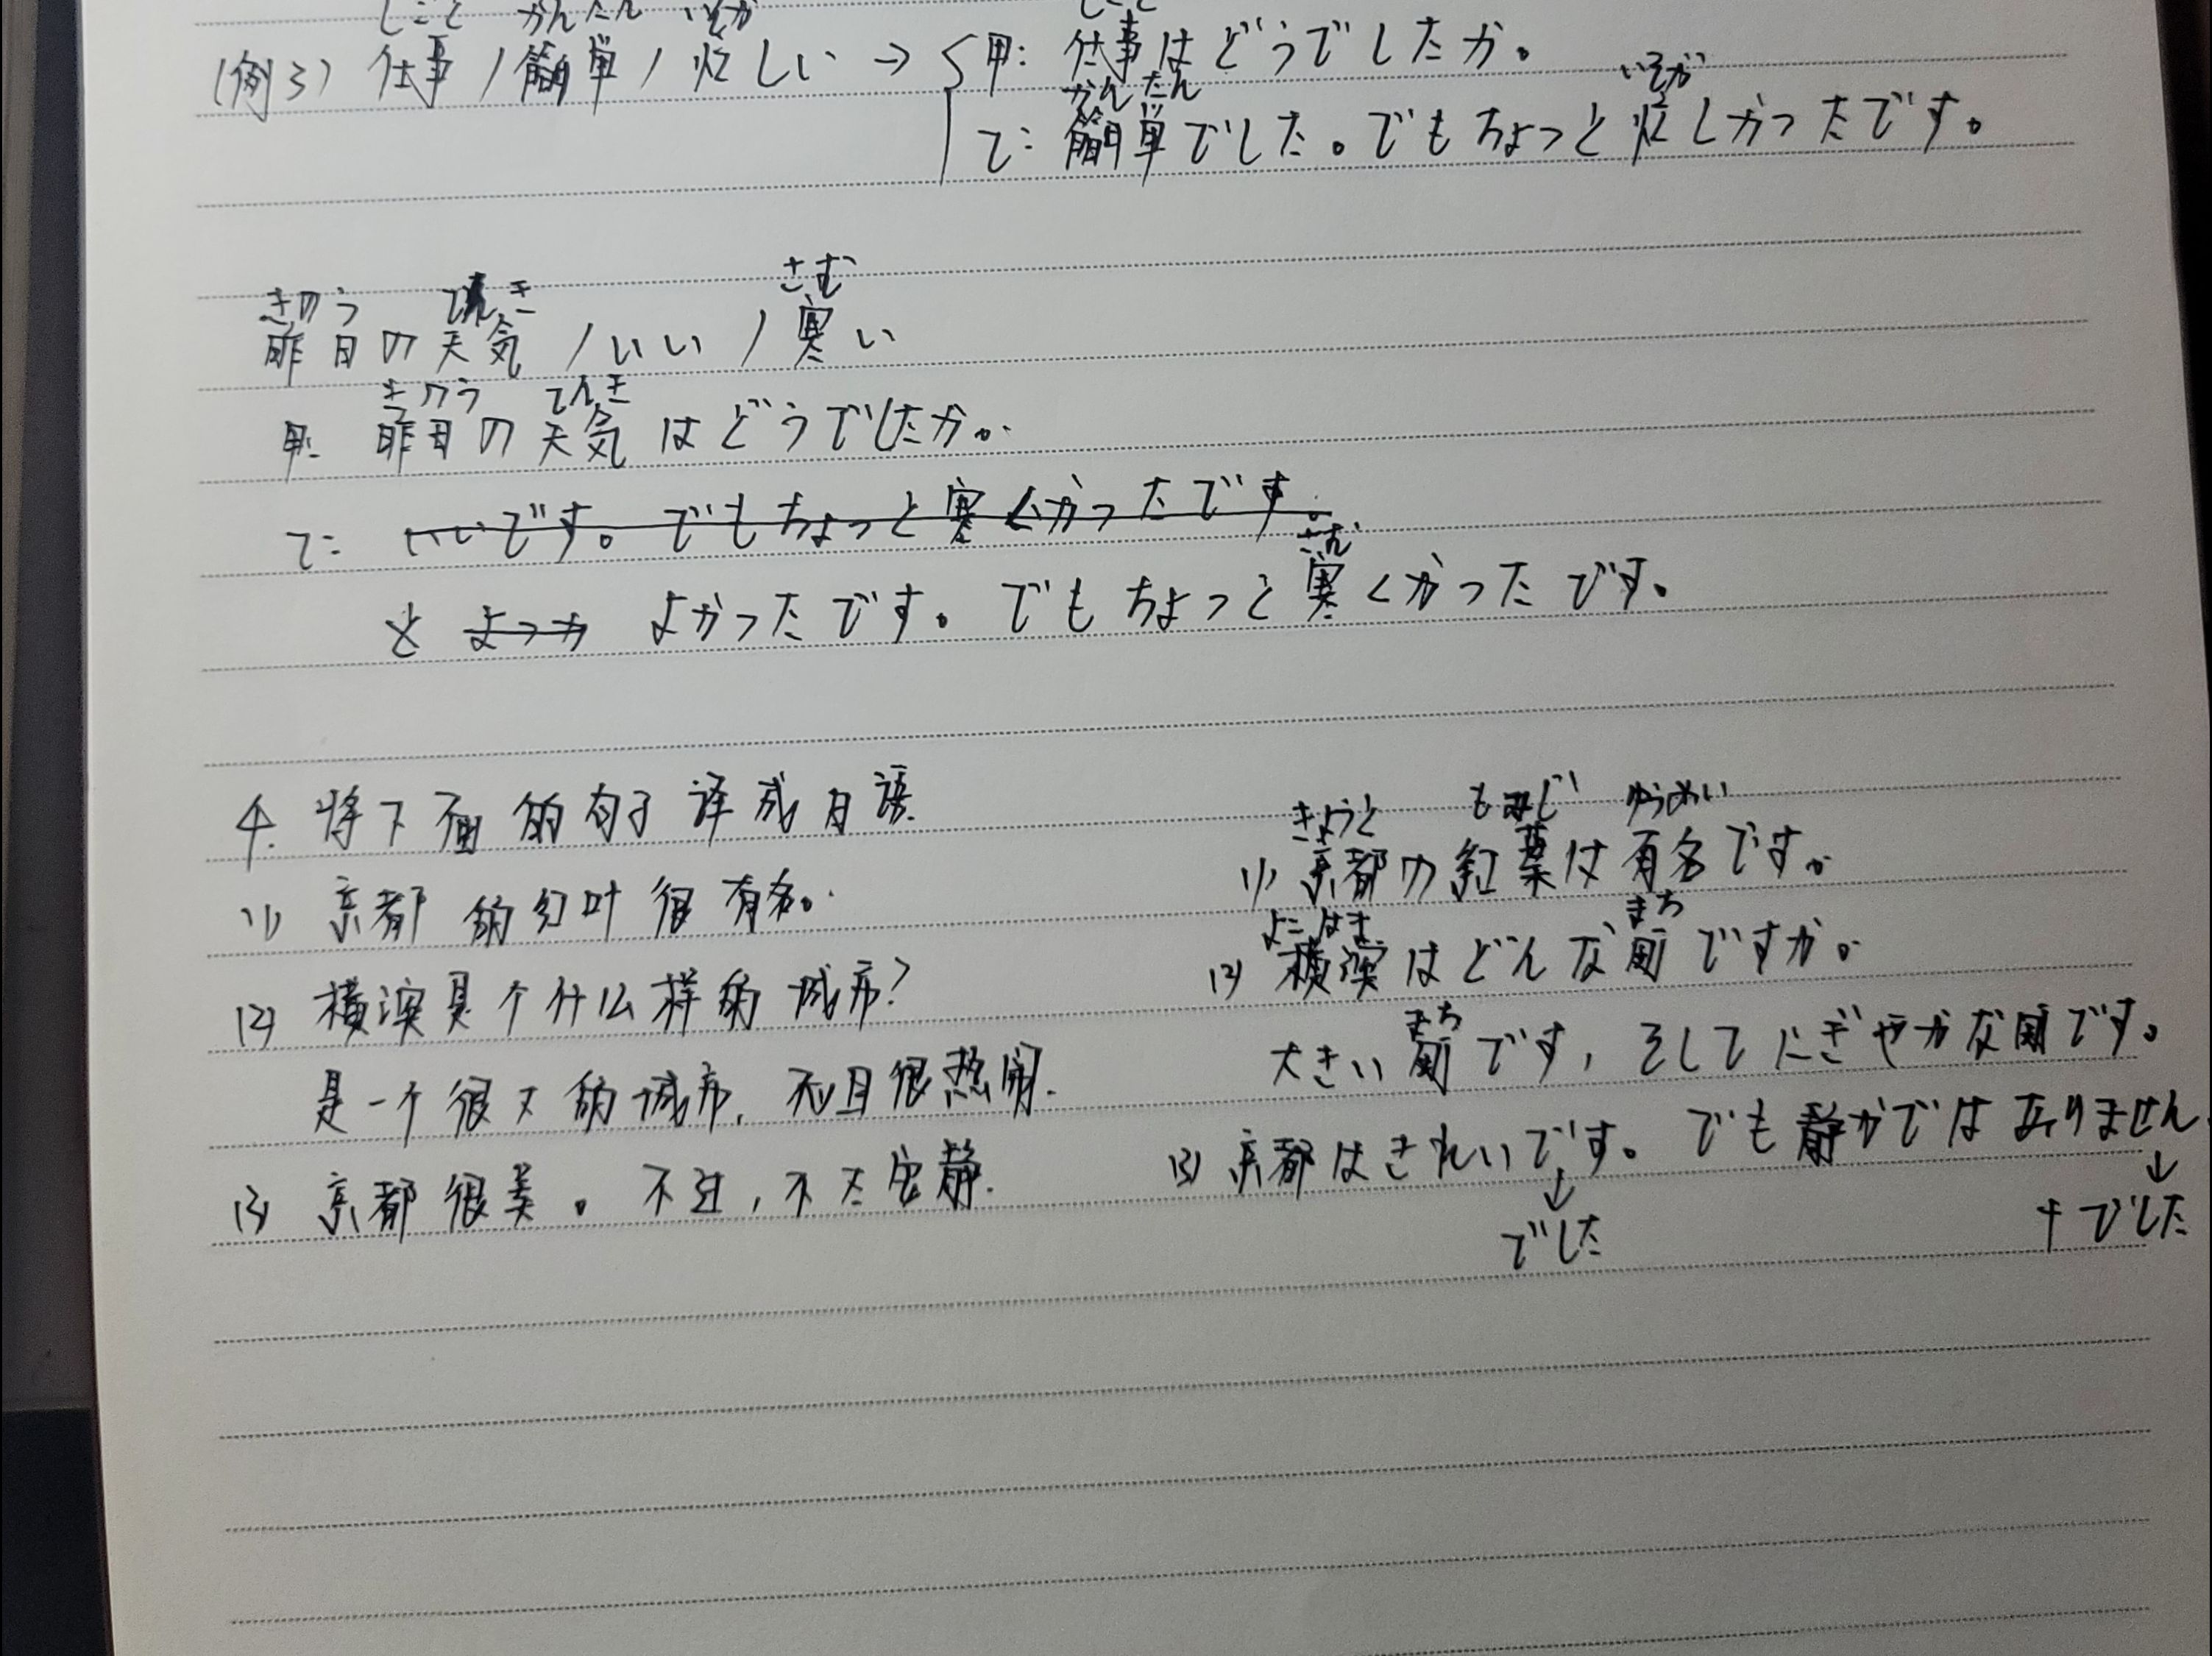 しごと かんたん いそが しごと
(例3) 仕事/簡単/忙しい→ 甲: 仕事はどうでしたか。
かんたん いそが
乙: 簡単でした。でもちょっと忙しかったです。
きのう てんき さむ
昨日の天気/いい/寒い
きのう てんき
甲: 昨日の天気はどうでしたか。
乙: いいです。でもちょっと寒くかったです。
さむ
よっか よかったです。でもちょっと寒くかったです。
4. 将下面的句子译成日语.
きょうと もみじ ゆうめい
(1) 京都的红叶很有名。 (1) 京都の紅葉は有名です。
よこはま まち
(2) 横滨是个什么样的城市? (2) 横濱はどんな町ですか。
まち
是一个很大的城市, 而且很热闹. 大きい町です, そしてにぎやかな町です。
(3) 京都很美。不过,不太安静. (3) 京都はきれいです。でも静かではありません.
↓ ↓
でした +でした